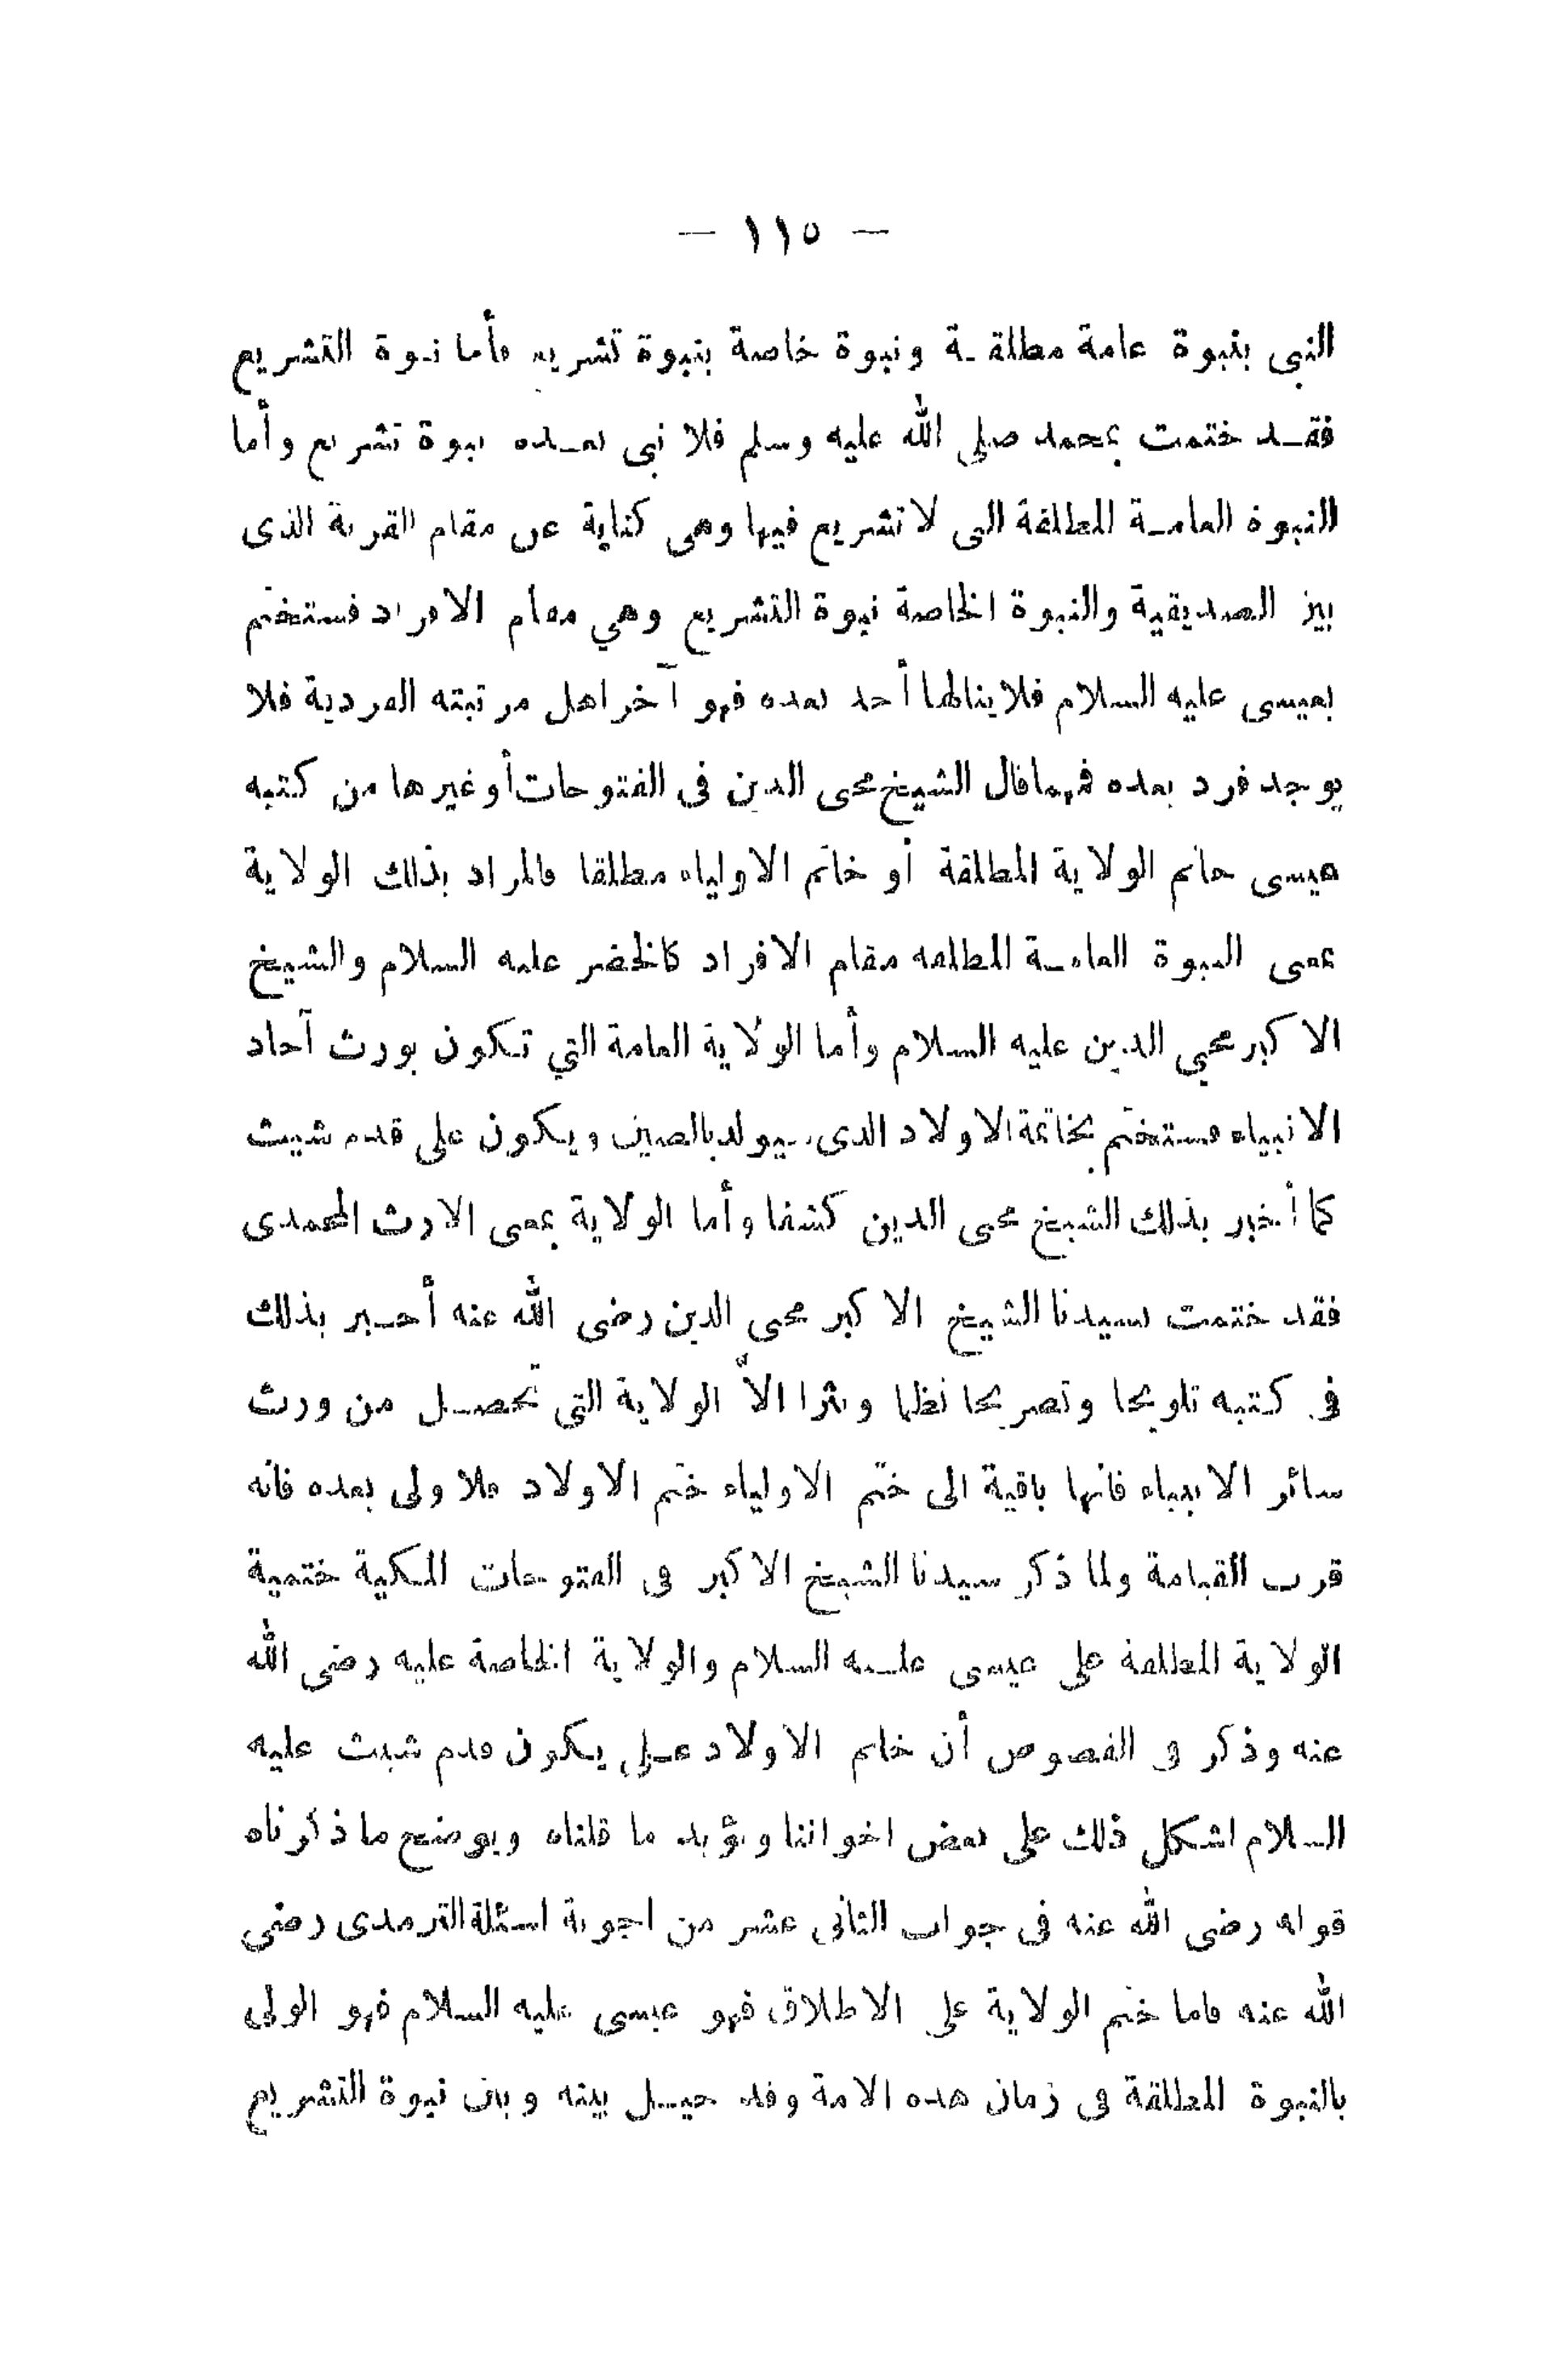 — ١١٥ —
النبى بنبوة عامة مطلقة ونبوة خاصة بنبوة تشريع فأما نبوة التشريع
فقد ختمت بمحمد صلى الله عليه وسلم فلا نبى بعده بنبوة تشريع وأما
النبوة العامة المطلقة التى لا تشريع فيها وهى كناية عن مقام القربة الذى
بين الصديقية والنبوة الخاصة نبوة التشريع وهي مقام الافراد فستختم
بعيسى عليه السلام فلا ينالها أحد بعده فهو آخر اهل مرتبته الفردية فلا
يوجد فرد بعده فمهما قال الشيخ محى الدين فى الفتوحات أو غيرها من كتبه
عيسى خاتم الولاية المطلقة أو خاتم الاولياء مطلقا فالمراد بذلك الولاية
بمعنى النبوة العامة المطلقة مقام الافراد كالخضر عليه السلام والشيخ
الاكبر محيي الدين عليه السلام وأما الولاية العامة التي تكون بورث آحاد
الانبياء فستختم بخاتمة الاولاد الذى سيولد بالصين ويكون على قدم شيث
كما أخبر بذلك الشيخ محى الدين كشفا وأما الولاية بمعنى الارث المحمدى
فقد ختمت بسيدنا الشيخ الاكبر محى الدين رضى الله عنه أخبر بذلك
فى كتبه تلويحا وتصريحا نظما ونثرا الاّ الولاية التى تحصل من ورث
سائر الانبياء فانها باقية الى ختم الاولياء ختم الاولاد فلا ولى بعده فانه
قرب القيامة ولما ذكر سيدنا الشيخ الاكبر فى الفتوحات المكية ختمية
الولاية المطلقة على عيسى عليه السلام والولاية الخاصة عليه رضى الله
عنه وذكر فى الفصوص أن خاتم الاولاد على يكون قدم شيث عليه
السلام اشكل ذلك على بعض اخواننا ويؤيد ما قلناه ويوضح ما ذكرناه
قوله رضى الله عنه فى جواب الثانى عشر من اجوبة اسئلة الترمذى رضى
الله عنه فاما ختم الولاية على الاطلاق فهو عيسى عليه السلام فهو الولى
بالنبوة المطلقة فى زمان هذه الامة وقد حيل بينه وبين نبوة التشريع